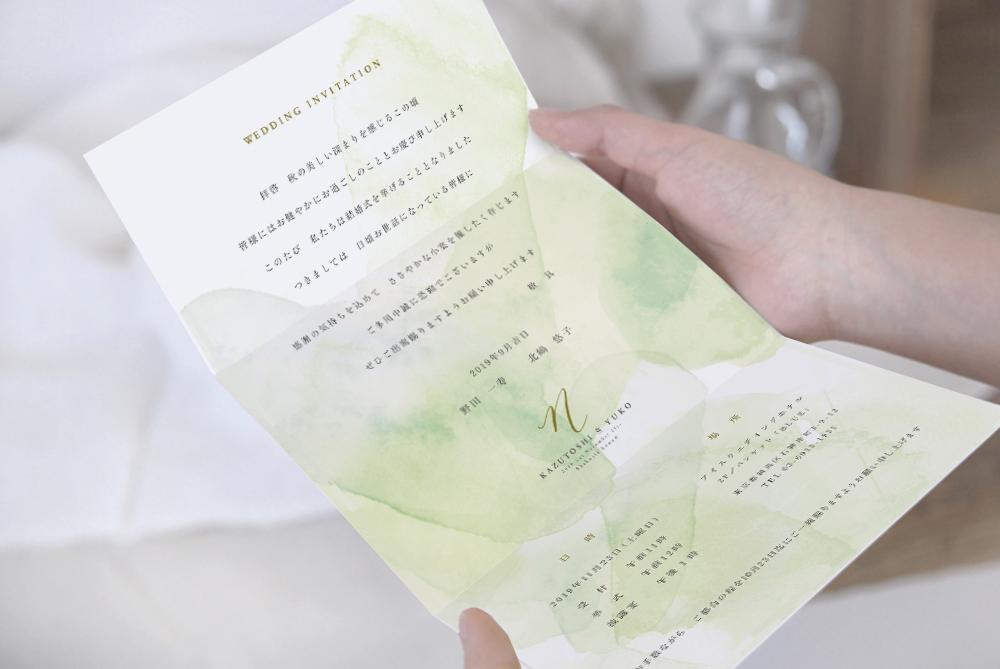 WEDDING INVITATION
拝啓 秋の美しい深まりを感じるこの頃
皆様にはお健やかにお過ごしのこととお慶び申し上げます
このたび 私たちは結婚式を挙げることとなりました
つきましては 日頃お世話になっている皆様に
感謝の気持ちを込めて ささやかな小宴を催したく存じます
ご多用中誠に恐縮でございますが
ぜひご出席賜りますようお願い申し上げます
敬具
2019年9月吉日
野田 一寿 北嶋 悠子
n
KAZUTOSHI & YUKO
日時
2019年11月23日(土曜日)
受付 午前11時
挙式 午前12時
披露宴 午後1時
場所
アイスウエディングホテル
2F/バンケット
東京都
TEL
手数ながら ご都合の程を10月23日迄にご一報賜りますようお願い申し上げます